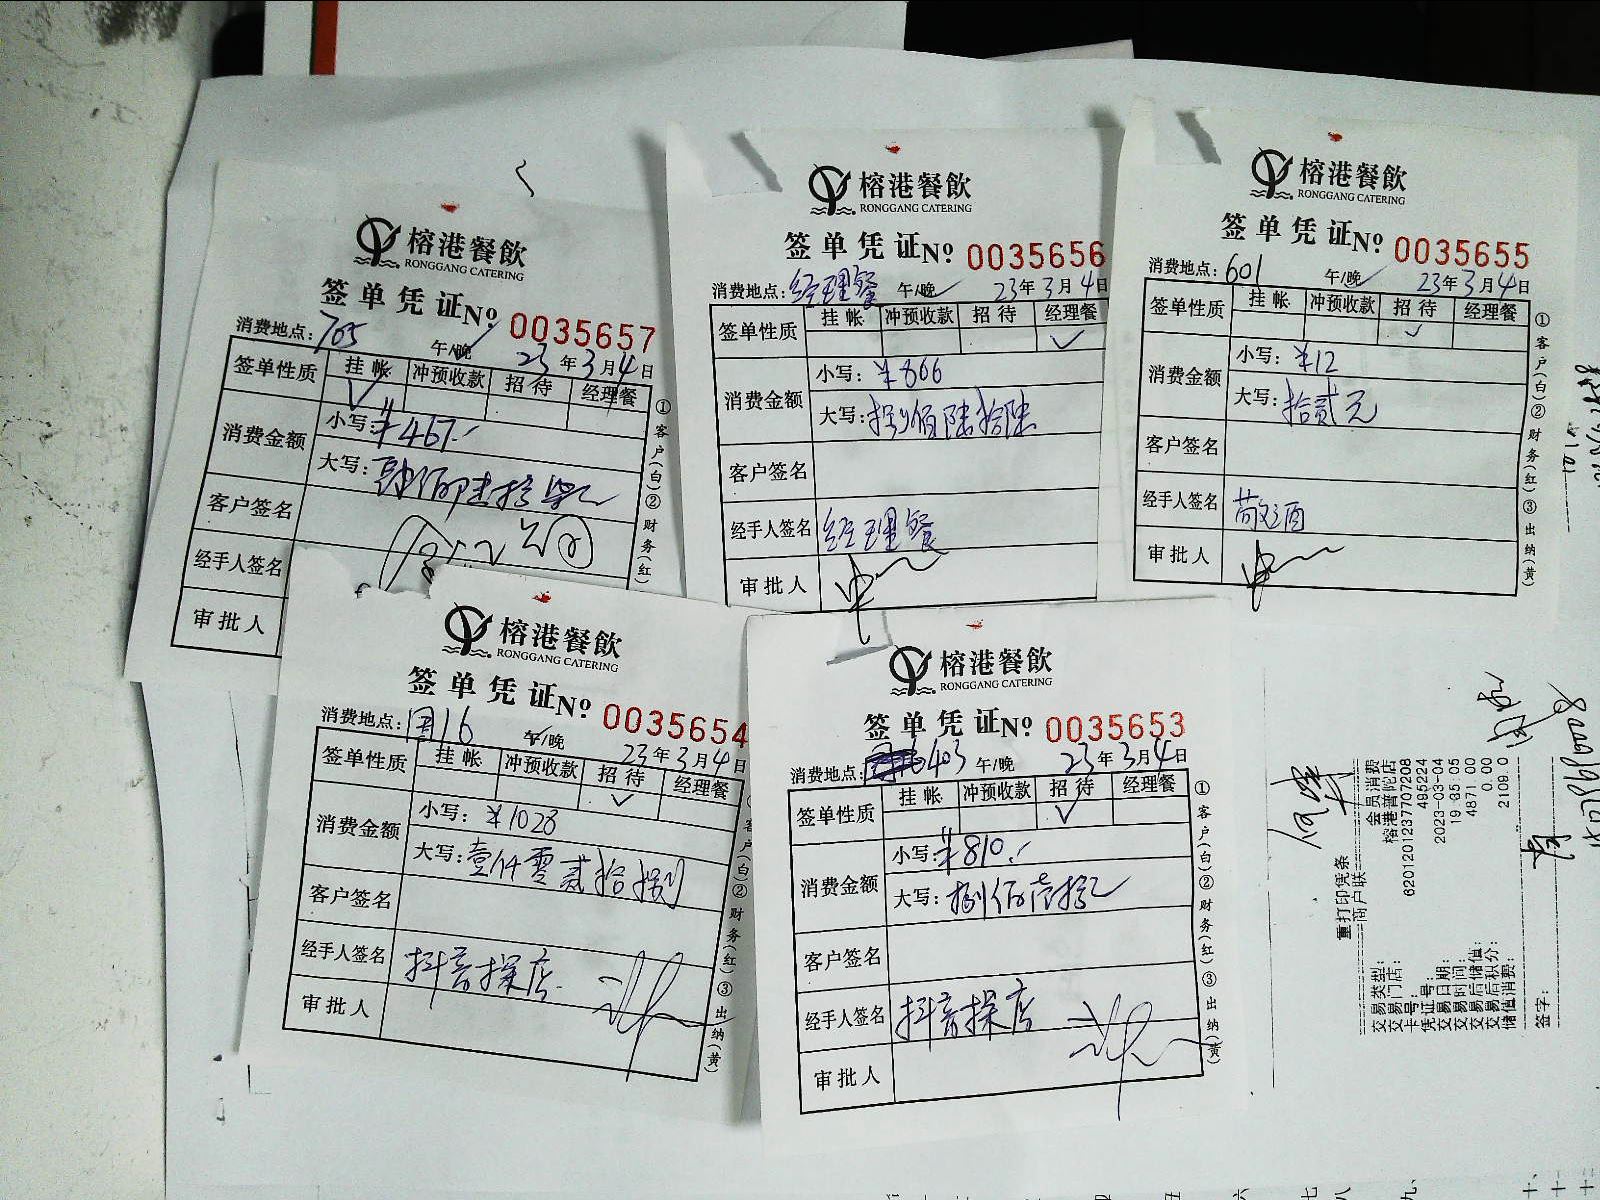 榕港餐飲
RONGGANG CATERING
签单凭证 Nº 0035657
消费地点: 705 午/晚 23年3月4日
签单性质 挂帐 冲预收款 招待 经理餐
消费金额 小写: ¥467.-
大写: 肆佰陆拾柒元
客户签名
经手人签名
审批人
①客户(白)②财务(红)
榕港餐飲
RONGGANG CATERING
签单凭证 Nº 0035656
消费地点: 经理餐 午/晚 23年3月4日
签单性质 挂帐 冲预收款 招待 经理餐
消费金额 小写: ¥866
大写: 捌佰陆拾陆
客户签名
经手人签名 经理餐
审批人
榕港餐飲
RONGGANG CATERING
签单凭证 Nº 0035655
消费地点: 601 午/晚 23年3月4日
签单性质 挂帐 冲预收款 招待 经理餐
消费金额 小写: ¥12
大写: 拾贰元
客户签名
经手人签名
审批人
①客户(白)②财务(红)③出纳(黄)
榕港餐飲
RONGGANG CATERING
签单凭证 Nº 0035654
消费地点: 16 午/晚 23年3月4日
签单性质 挂帐 冲预收款 招待 经理餐
消费金额 小写: ¥1028
大写: 壹仟零贰拾捌
客户签名
经手人签名 抖音探店
审批人
①客户(白)②财务(红)③出纳(黄)
榕港餐飲
RONGGANG CATERING
签单凭证 Nº 0035653
消费地点: 403 午/晚 23年3月4日
签单性质 挂帐 冲预收款 招待 经理餐
消费金额 小写: ¥810.-
大写: 捌佰壹拾元
客户签名
经手人签名 抖音探店
审批人
①客户(白)②财务(红)③出纳(黄)
重打印凭条
商户联
交易类型: 会员消费
交易门店: 榕港普陀店
卡号: 6201201237707208
凭证号: 495224
交易日期: 2023-03-04
交易时间: 19:35:05
交易后储值: 4871.00
交易后积分: 0.00
储值消费: 2109.0
签字: